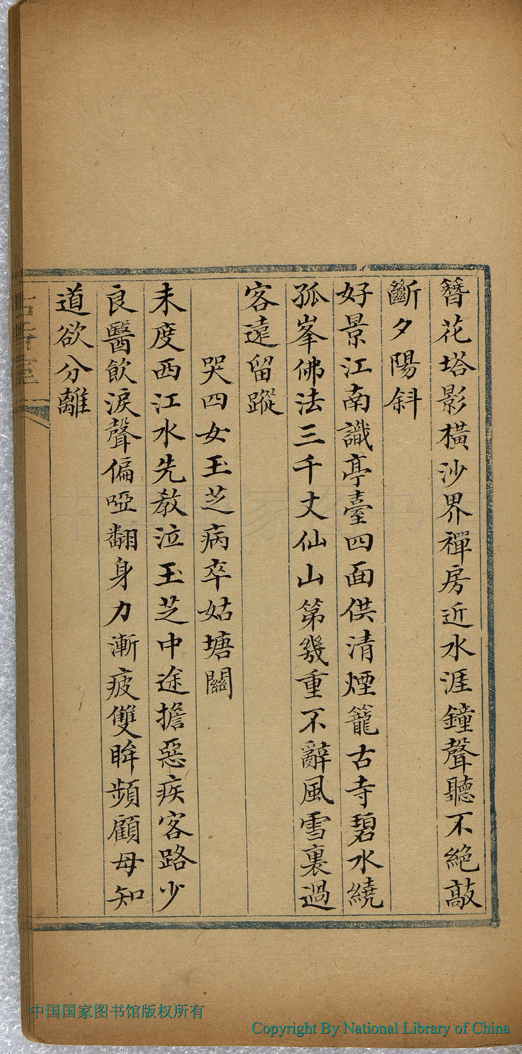 簪花塔影橫沙界禪房近水涯鐘聲聽不絕敲
斷夕陽斜
好景江南識亭臺四面供清煙籠古寺碧水繞
孤峯佛法三千丈仙山第幾重不辭風雪裏過
客遠留蹤
哭四女玉芝病卒姑塘關
未度西江水先教泣玉芝中途擔惡疾客路少
良醫飲淚聲偏啞翻身力漸疲雙眸頻顧母知
道欲分離
中国国家图书馆版权所有
Copyright By National Library of China